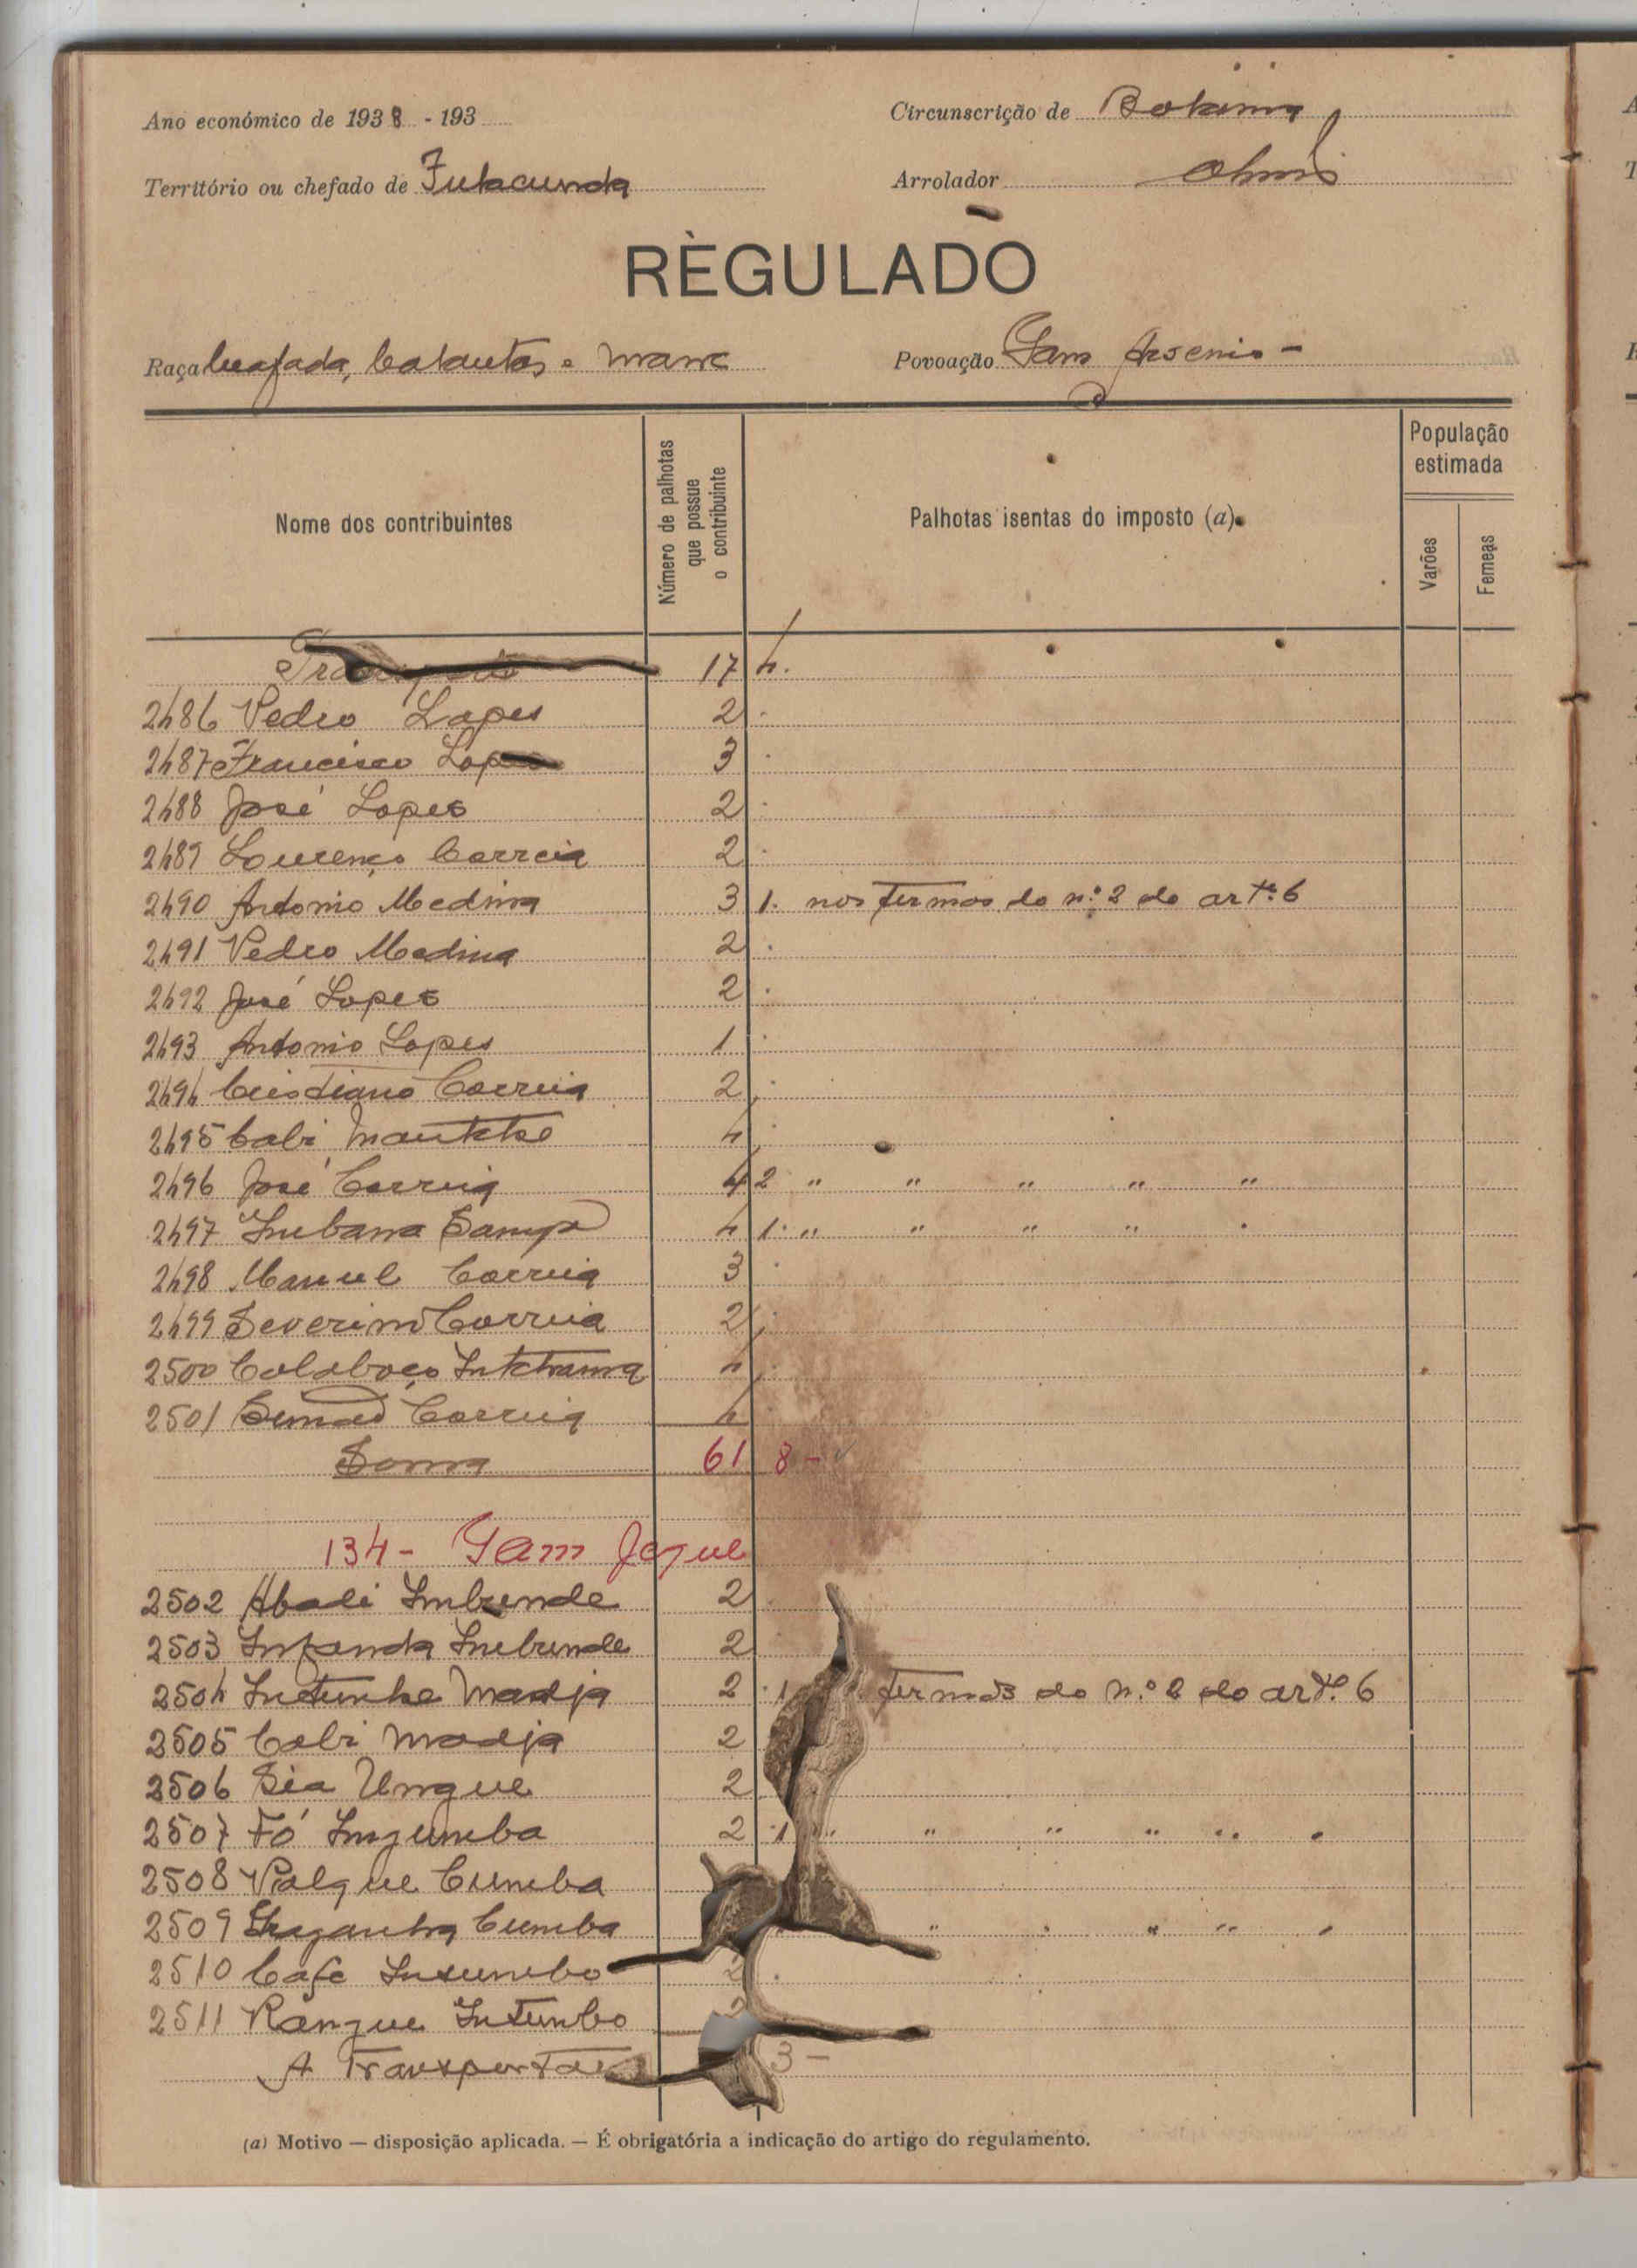 Ano económico de 1938 - 193
Circunscrição de Bolama
Território ou chefado de Fulacunda
Arrolador
REGULADO
Raça beafada, balantas e
Povoação Gam Arsenio -
Nome dos contribuintes
Número de palhotas que possue o contribuinte
Palhotas isentas do imposto (a)
População estimada
Varões
Femeas
17 4.
2486 Pedro Lopes 2
2487 Francisco Lopes 3
2488 José Lopes 2
2489 Lourenço Correia 2
2490 Antonio Medina 3 1. nos termos do n.º 2 do artº. 6
2491 Pedro Medina 2
2492 José Lopes 2
2493 Antonio Lopes 1
2494 Cristiano Correia 2
2495 Cabi 4
2496 José Correia 4 2 " " " " "
2497 4 1. " " " "
2498 Manuel Correia 3
2499 Severino Correia 2
2500 4
2501 Correia 4
Soma 61 8 -
134 - Gam Joque
2502 Abali Imbunde 2
2503 Infanda Imbunde 2
2504 Madja 2 1 termos do n.º 2 do artº. 6
2505 Cabi Madja 2
2506 Sia Ungue 2
2507 Fó 2 1 " " " " "
2508 Cumba
2509 Cumba " " " "
2510 Cafe 2
2511 Rangue Intumbo 2
A Transportar 3 -
(a) Motivo — disposição aplicada. — É obrigatória a indicação do artigo do regulamento.